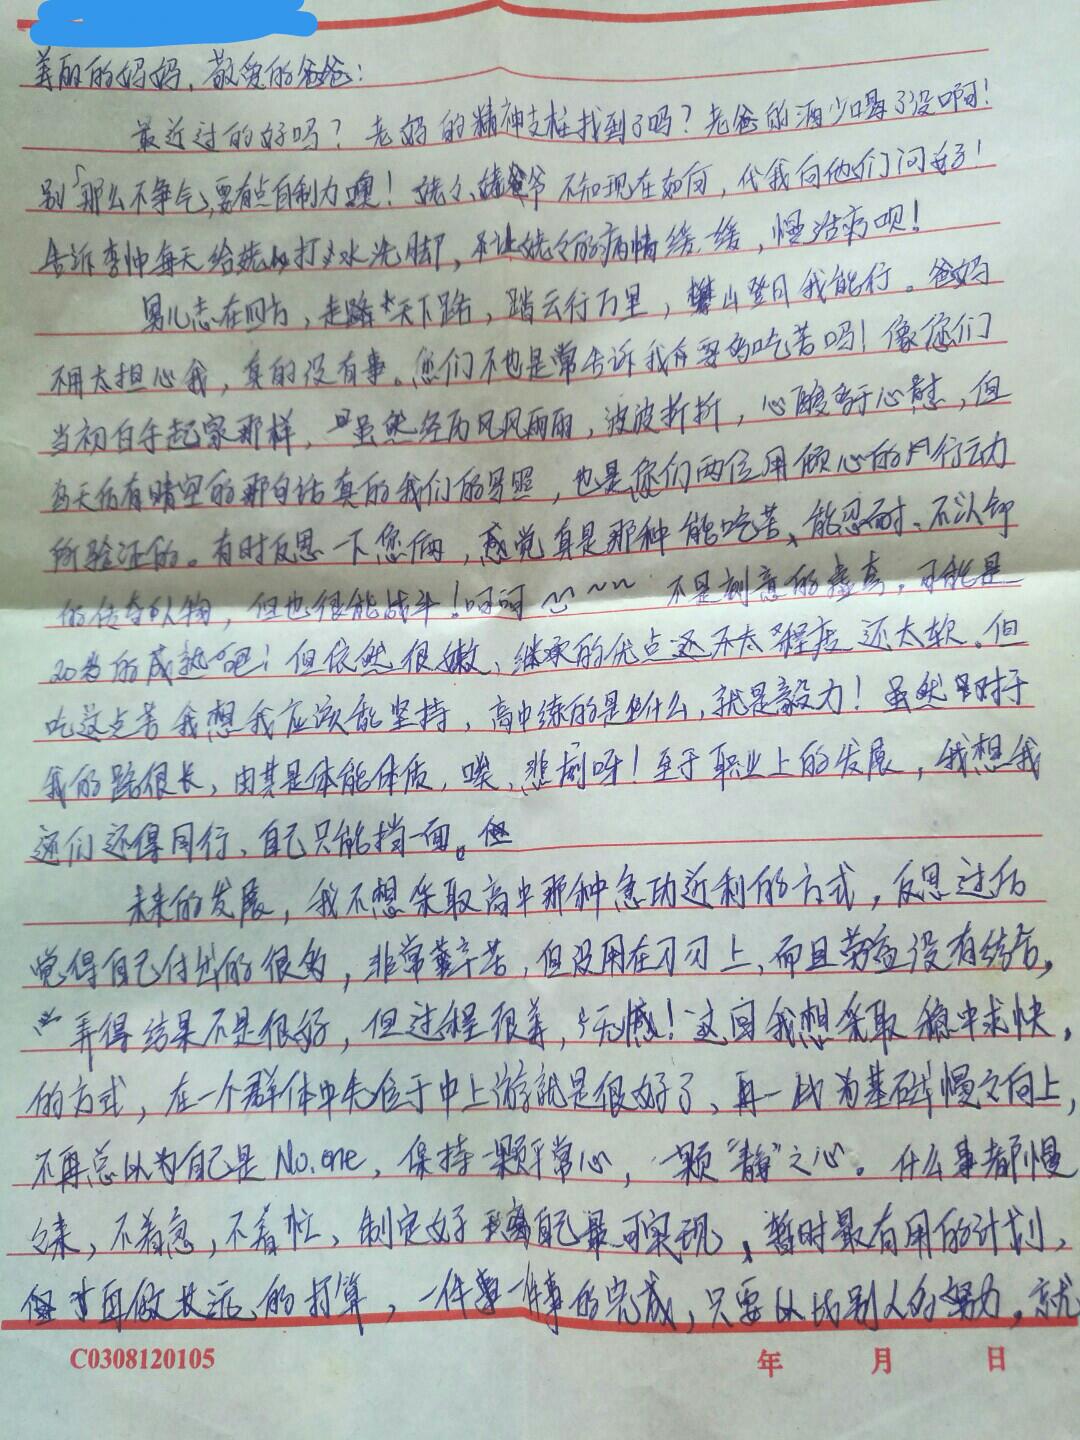 美丽的妈妈，敬爱的爸爸：
最近过的好吗？老妈的精神支柱找到了吗？老爸的酒少喝了没啊！
别那么不争气，要有点自制力噢！姥姥、姥爷不知现在如何，代我向他们问好！
告诉李帅每天给姥姥打打水洗脚，不让姥姥的病情 缓一缓，慢治为呗！
男儿志在四方，走路走天下路，踏云行万里，攀山登月我能行。爸妈
不用太担心我，真的没有事。您们不也是常告诉我有要多吃苦吗！像您们
当初白手起家那样，虽然经历风风雨雨，波波折折，心酸多于心慰，但
天后有晴空的那句话真的我们的写照，也是您们两位用倾心的行动
所验证的。有时反思一下您俩，感觉真是那种能吃苦、能忍耐、不认命
的传奇人物，但也很能战斗！呵呵~~~不是刻意的虚夸，可能是
20岁的成熟吧！但依然很嫩、继承的优点还不太 程度还太软。但
吃这点苦我想我应该能坚持，高中练的是什么，就是毅力！虽然对于
我的路很长，由其是体能体质，唉，悲剧呀！至于职业上的发展，我想我
还们还得同行、自己只能挡一面。
未来的发展，我不想采取高中那种急功近利的方式，反思过后
觉得自己付出的很多，非常辛苦，但没用在刀刃上，而且劳逸没有结合，
弄得结果不是很好，但过程很美，无憾！这回我想采取稳中求快，
的方式，在一个群体中先位于中上游就是很好了、再一此为基础慢慢向上，
不再总以为自己是No.one，保持一颗平常心，一颗“静”之心。什么事都慢
慢来，不着急，不着忙、制定好 离自己最可实现、暂时最有用的计划，
再做长远的打算，一件事一件事的完成，只要以比别人的努力，就
C0308120105 年 月 日